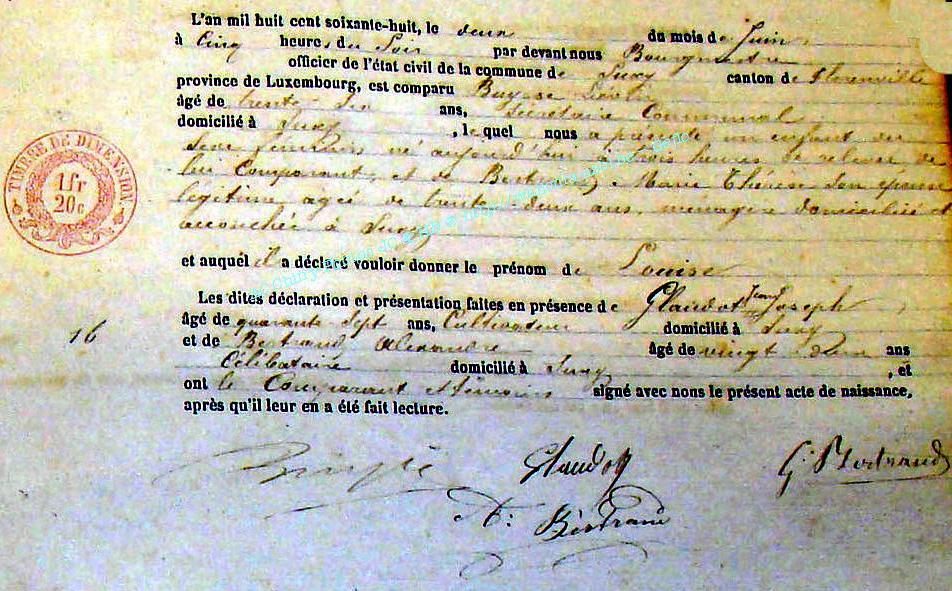 L'an mil huit cent soixante-huit, le deux du mois de Juin
à Cinq heures du Soir par devant nous Bourgmestre
officier de l'état civil de la commune de Suxy canton de Florenville
province de Luxembourg, est comparu
âgé de trente ans, Secrétaire Communal
domicilié à Suxy, lequel nous a présenté un enfant du
Sexe féminin né aujourd'hui à trois heures de relevée de
lui Comparant, et de Bertrand, Marie Thérèse Son épouse
légitime, agée de trente deux ans, ménagère domiciliée
accouchée à Suxy
et auquel il a déclaré vouloir donner le prénom de Louise
TIMBRE DE DIMENSION.
1fr
20c
Les dites déclaration et présentation faites en présence de Glaudot Jean Joseph
âgé de quarante Sept ans, Cultivateur domicilié à Suxy
16
et de Bertrand Alexandre âgé de vingt deux ans
Célibataire domicilié à Suxy, et
ont le Comparant et témoins signé avec nous le présent acte de naissance,
après qu'il leur en a été fait lecture.
Glaudot
G. Bertrand
A: Bertrand